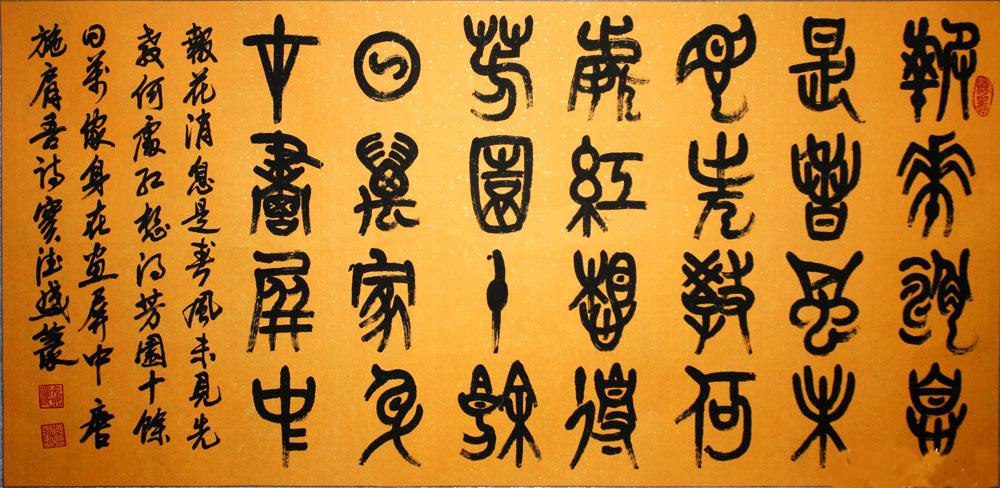 報花消息
是春風未
見先教何
處紅想得
芳園十餘
日萬家身
在畫屏中
報花消息是春風未見先
教何處紅想得芳園十餘
日萬家身在画屏中 唐
施肩吾詩 篆